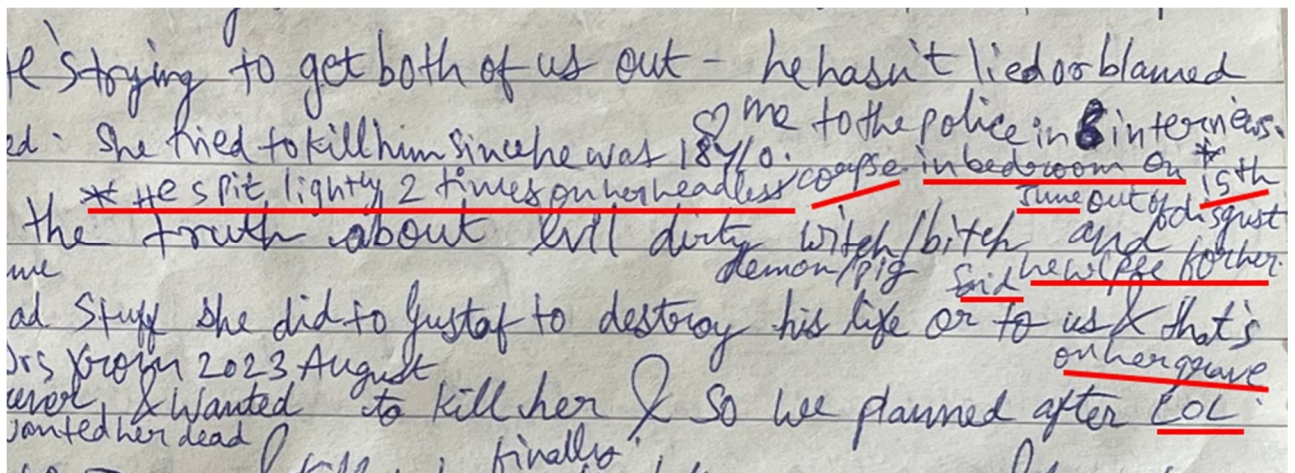 He's trying to get both of us out - he hasn't lied or blamed
♡ me to the police in 6 interviews.
ed: She tried to kill him since he was 18 y/o.
* He spit lightly 2 times on her headless corpse in bedroom on * 15th
June out of disgust
the truth about evil dirty witch/bitch and
me demon/pig said he'll for her.
ad stuff she did to Gustaf to destroy his life or to us & that's
on her grave
from 2023 August
& wanted to kill her & so we planned after LOL.
wanted her dead
finally